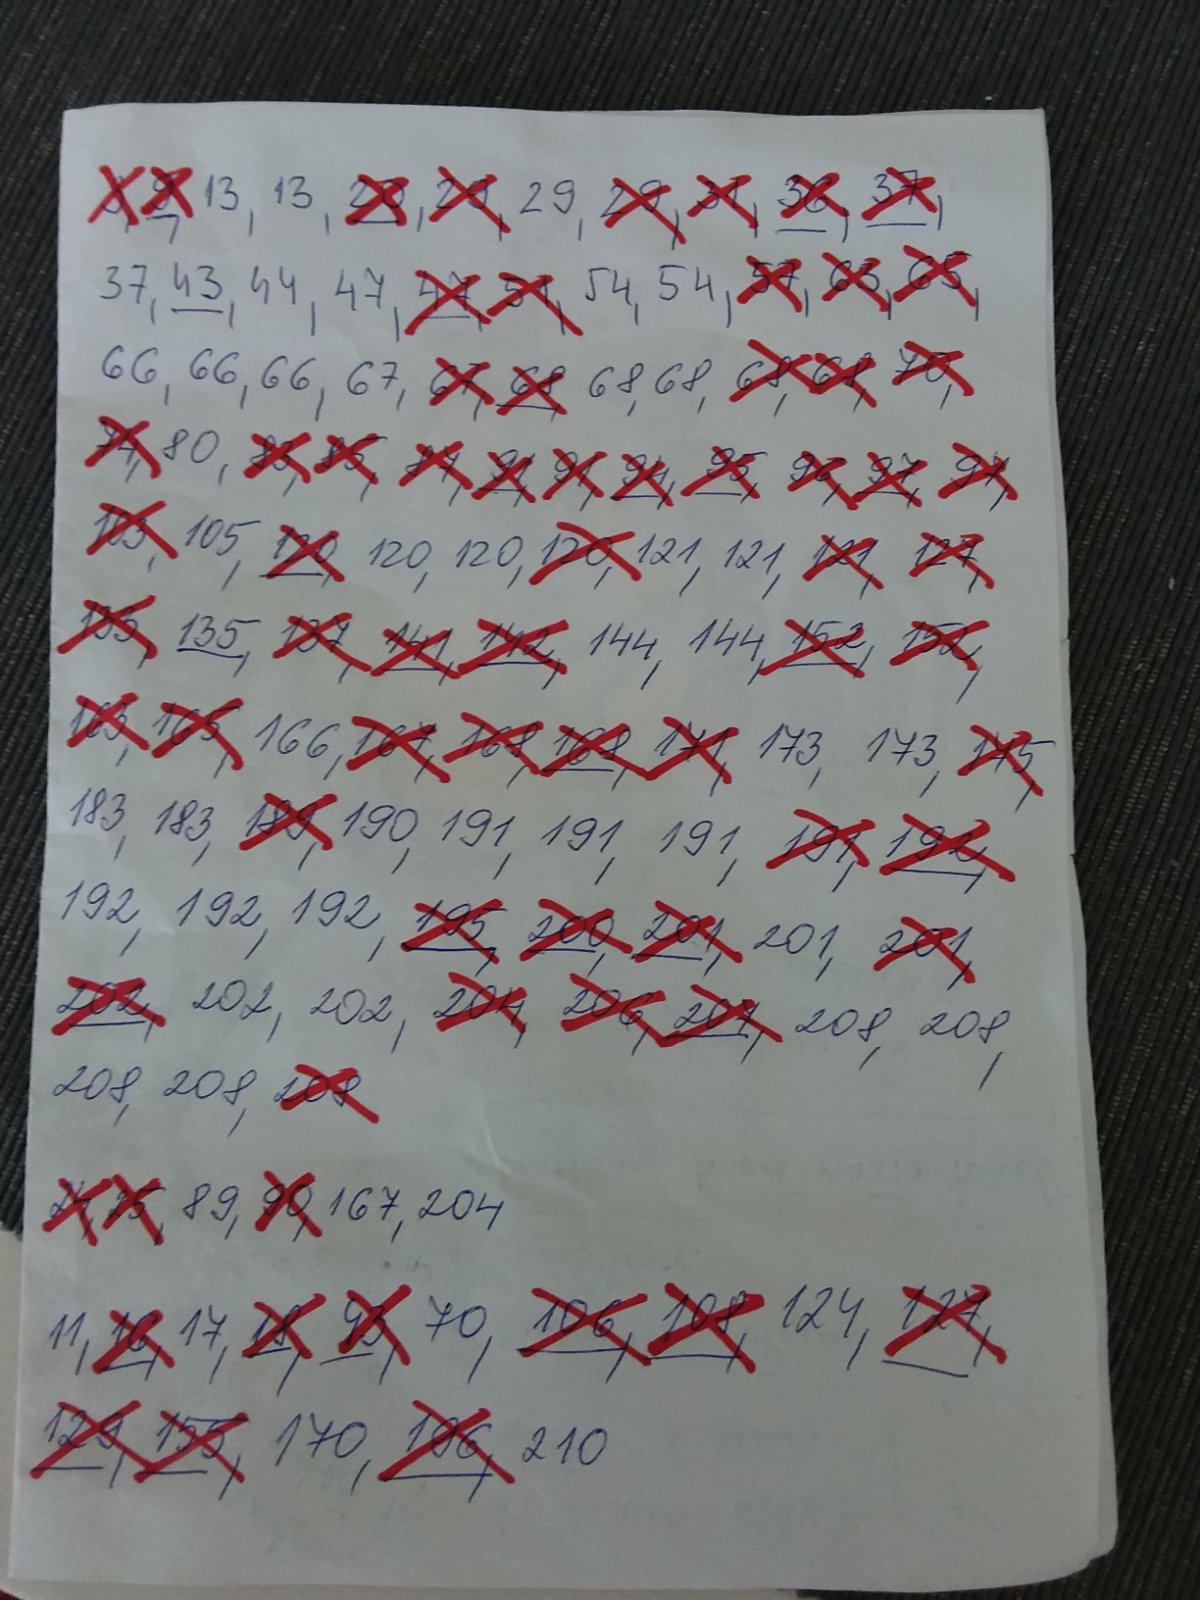 9, 13, 13, 20, 29, 29, 29, 31, 36, 37,
37, 43, 44, 47, 47, 51, 54, 54, 57, 63, 65,
66, 66, 66, 67, 67, 68, 68, 68, 68, 68, 70,
74, 80, 83, 85, 87, 91, 91, 94, 95, 96, 97, 97,
103, 105, 120, 120, 120, 120, 121, 121, 121, 127,
135, 135, 137, 141, 142, 144, 144, 152, 152,
163, 165, 166, 167, 168, 168, 171, 173, 173, 175,
183, 183, 189, 190, 191, 191, 191, 191, 192,
192, 192, 192, 195, 200, 201, 201, 201,
202, 202, 202, 204, 206, 207, 208, 208,
208, 208, 208
24, 25, 89, 90, 167, 204
11, 16, 17, 18, 43, 70, 106, 108, 124, 127,
129, 155, 170, 196, 210